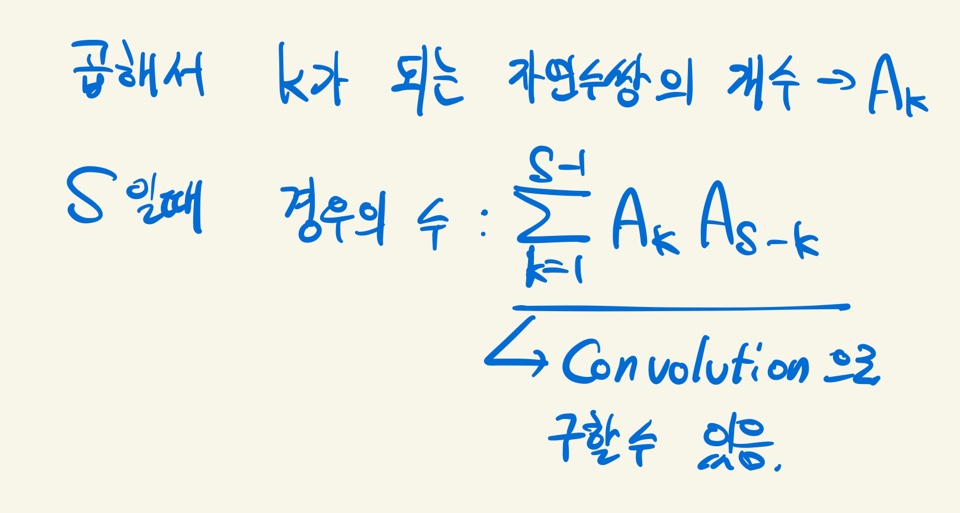 곱해서 k가 되는 자연수쌍의 개수 → A_k
S일때 경우의 수 : \sum_{k=1}^{S-1} A_k A_{S-k}
↳ Convolution으로
구할수 있음.